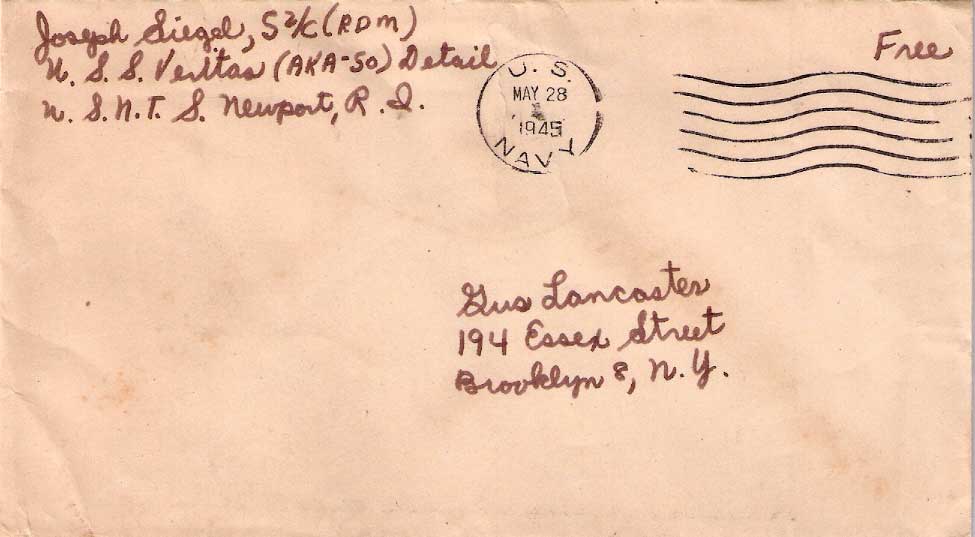 Joseph Siegel, S 2/c (RDM)
U. S. S. Veritas (AKA-50) Detail
U. S. N. T. S. Newport, R. I.
Free
U. S.
MAY 28
1945
NAVY
Gus Lancaster
194 Essex Street
Brooklyn 8, N. Y.